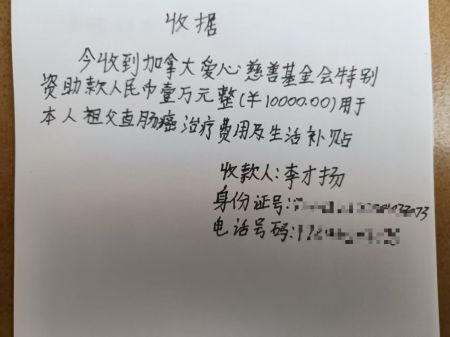 收据
今收到加拿大爱心慈善基金会特别
资助款人民币壹万元整(￥10000.00)用于
本人祖父直肠癌治疗费用及生活补贴
收款人:李才扬
身份证号:
电话号码: